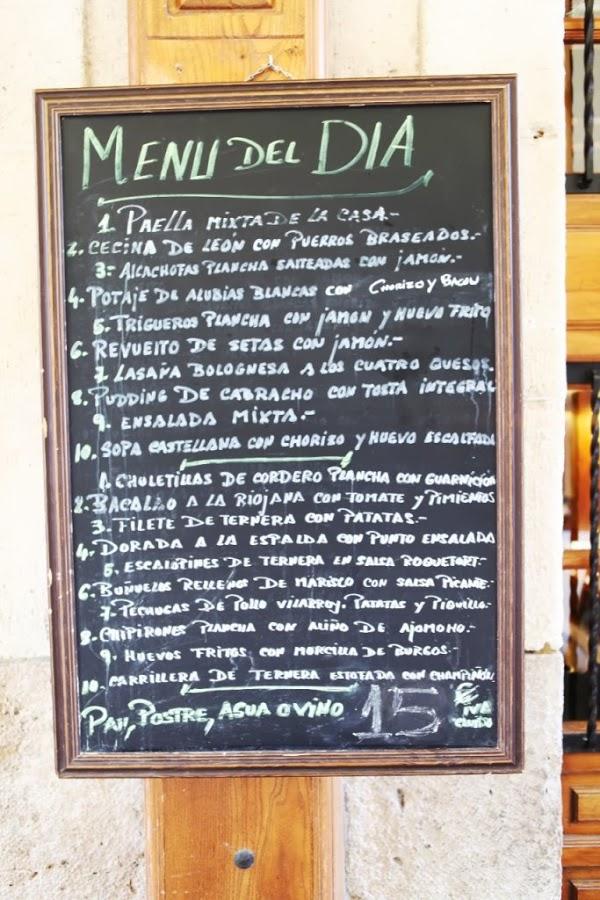 MENU DEL DIA
1. PAELLA MIXTA DE LA CASA.-
2. CECINA DE LEÓN CON PUERROS BRASEADOS.-
3.- ALCACHOFAS PLANCHA SALTEADAS CON JAMÓN.-
4. POTAJE DE ALUBIAS BLANCAS CON CHORIZO Y BACON
5. TRIGUEROS PLANCHA CON JAMON Y HUEVO FRITO
6. REVUELTO DE SETAS CON JAMÓN.-
7. LASAÑA BOLOGNESA A LOS CUATRO QUESOS.
8. PUDDING DE CABRACHO CON TOSTA INTEGRAL
9. ENSALADA MIXTA.-
10. SOPA CASTELLANA CON CHORIZO Y HUEVO ESCALFADO
1. CHULETILLAS DE CORDERO PLANCHA CON GUARNICION
2. BACALAO A LA RIOJANA CON TOMATE Y PIMIENTOS
3. FILETE DE TERNERA CON PATATAS.-
4. DORADA A LA ESPALDA CON PUNTO ENSALADA
5. ESCALOPINES DE TERNERA EN SALSA ROQUEFORT.-
6. BUÑUELOS RELLENOS DE MARISCO CON SALSA PICANTE.-
7. PECHUGAS DE POLLO VILARROJ. PATATAS Y PIQUILLO.-
8. CHIPIRONES PLANCHA CON ALIÑO DE AJOMOHO.-
9. HUEVOS FRITOS CON MORCILLA DE BURGOS.-
10. CARRILLERA DE TERNERA ESTOFADA CON CHAMPIÑON
PAN, POSTRE, AGUA O VINO 15 € IVA